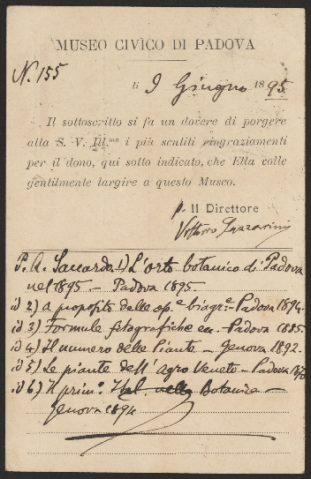 MUSEO CIVICO DI PADOVA
N. 155
li 9 Giugno 1895
Il sottoscritto si fa un dovere di porgere
alla S. V. Ill.ma i più sentiti ringraziamenti
per il dono, qui sotto indicato, che Ella volle
gentilmente largire a questo Museo.
p. Il Direttore
Vittorio Lazzarini
P. A. Saccardo 1) L'orto botanico di Padova
nel 1895. - Padova 1895.
id 2) a proposito delle biogr. - Padova 1894.
id 3) Formule fotografiche - Padova 1885.
id 4) Il numero delle Piante - Genova 1892.
id 5) Le piante dell'Agro Veneto - Padova
id 6) Il prim. Botanica -
Genova 1894